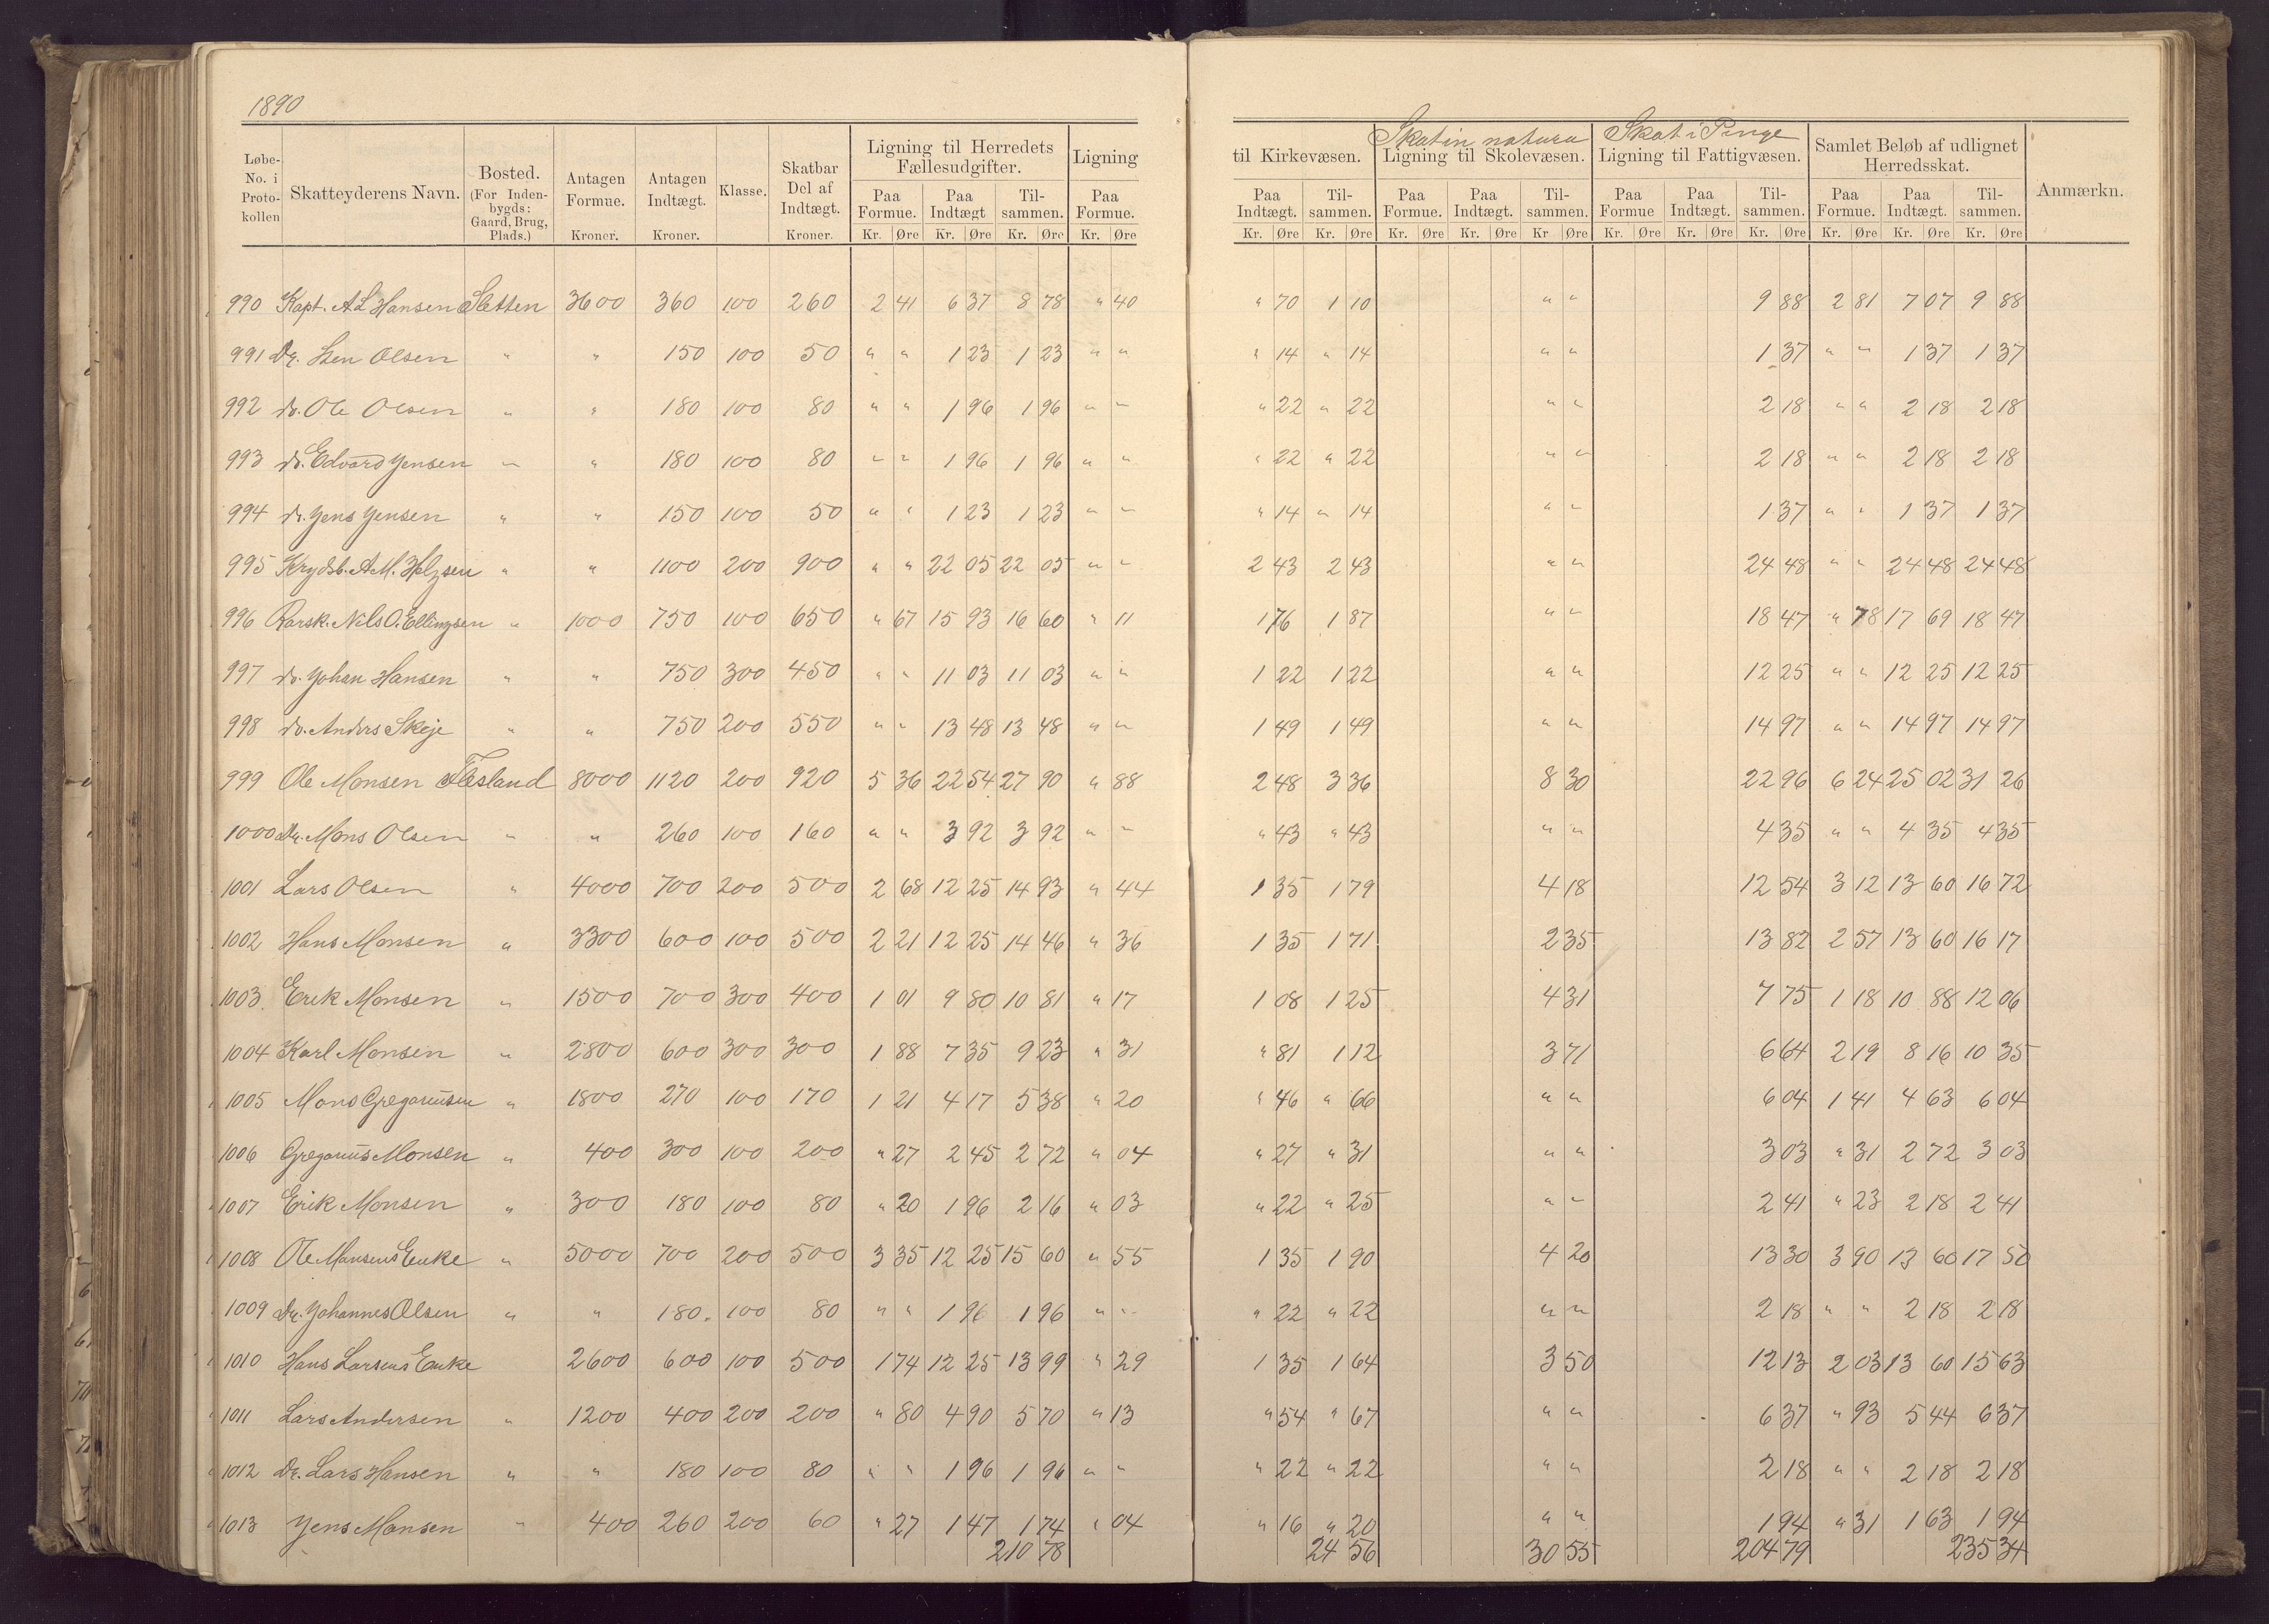 1890
Løbe-No. i Protokollen | Skatteyderens Navn. | Bosted. (For Indenbygds: Gaard, Brug, Plads.) | Antagen Formue. Kroner. | Antagen Indtægt. Kroner. | Klasse. | Skatbar Del af Indtægt. Kroner. | Ligning til Herredets Fællesudgifter. Paa Formue. Kr. Øre | Paa Indtægt Kr. Øre | Tilsammen. Kr. Øre | Ligning Paa Formue. Kr. Øre | til Kirkevæsen. Paa Indtægt. Kr. Øre | Tilsammen. Kr. Øre | Skat in natura Ligning til Skolevæsen. Paa Formue. Kr. Øre | Paa Indtægt. Kr. Øre | Tilsammen. Kr Øre | Skat i Penge Ligning til Fattigvæsen. Paa Formue Kr. Øre | Paa Indtægt. Kr. Øre | Tilsammen. Kr. Øre | Samlet Beløb af udlignet Herredsskat. Paa Formue. Kr. Øre | Paa Indtægt. Kr. Øre | Tilsammen. Kr. Øre | Anmærkn.
990 Kapt. A L Hansen Sletten 3600 360 100 260 2 41 6 37 8 78 " 40 " 70 1 10 " " 9 88 2 81 7 07 9 88
991 Dr. Olsen " " 150 100 50 " " 1 23 1 23 " " " 14 " 14 " " 1 37 " " 1 37 1 37
992 do. Ole Olsen " " 180 100 80 " " 1 96 1 96 " " " 22 " 22 " " 2 18 " " 2 18 2 18
993 do. Edvard Jensen " " 180 100 80 " " 1 96 1 96 " " " 22 " 22 " " 2 18 " " 2 18 2 18
994 do. Jens Jensen " " 150 100 50 " " 1 23 1 23 " " " 14 " 14 " " 1 37 " " 1 37 1 37
995 Krydsb. A.M. " " 1100 200 900 " " 22 05 22 05 " " 2 43 2 43 " " 24 48 " " 24 48 24 48
996 Nils O. Ellingsen " 1000 750 100 650 " 67 15 93 16 60 " 11 1 76 1 87 " " 18 47 " 78 17 69 18 47
997 do. Johan Hansen " " 750 300 450 " " 11 03 11 03 " " 1 22 1 22 " " 12 25 " " 12 25 12 25
998 do. Anders Skeje " " 750 200 550 " " 13 48 13 48 " " 1 49 1 49 " " 14 97 " " 14 97 14 97
999 Ole Monsen Flesland 8000 1120 200 920 5 36 22 54 27 90 " 88 2 48 3 36 8 30 22 96 6 24 25 02 31 26
1000 Dr. Mons Olsen " " 260 100 160 " " 3 92 3 92 " " " 43 " 43 " " 4 35 " " 4 35 4 35
1001 Lars Olsen " 4000 700 200 500 2 68 12 25 14 93 " 44 1 35 1 79 4 18 12 54 3 12 13 60 16 72
1002 Hans Monsen " 3300 600 100 500 2 21 12 25 14 46 " 36 1 35 1 71 2 35 13 82 2 57 13 60 16 17
1003 Erik Monsen " 1500 700 300 400 1 01 9 80 10 81 " 17 1 08 1 25 4 31 7 75 1 18 10 88 12 06
1004 Karl Monsen " 2800 600 300 300 1 88 7 35 9 23 " 31 " 81 1 12 3 71 6 64 2 19 8 16 10 35
1005 Mons Gregoriusen " 1800 270 100 170 1 21 4 17 5 38 " 20 " 46 " 66 " " 6 04 1 41 4 63 6 04
1006 Gregorius Monsen " 400 300 100 200 " 27 2 45 2 72 " 04 " 27 " 31 " " 3 03 " 31 2 72 3 03
1007 Erik Monsen " 300 180 100 80 " 20 1 96 2 16 " 03 " 22 " 25 " " 2 41 " 23 2 18 2 41
1008 Ole Monsens Enke " 5000 700 200 500 3 35 12 25 15 60 " 55 1 35 1 90 4 20 13 30 3 90 13 60 17 50
1009 Dr. Johannes Olsen " " 180. 100 80 " " 1 96 1 96 " " " 22 " 22 " " 2 18 " " 2 18 2 18
1010 Hans Larsens Enke 2600 600 100 500 1 74 12 25 13 99 " 29 1 35 1 64 3 50 12 13 2 03 13 60 15 63
1011 Lars Andersen " 1200 400 200 200 " 80 4 90 5 70 " 13 " 54 " 67 " " 6 37 " 93 5 44 6 37
1012 Dr. Lars Hansen " " 180 100 80 " " 1 96 1 96 " " " 22 " 22 " " 2 18 " " 2 18 2 18
1013 Jens Monsen " 400 260 200 60 " 27 1 47 1 74 " 04 " 16 " 20 " " 1 94 " 31 1 63 1 94
210 78 24 56 30 55 204 79 235 34